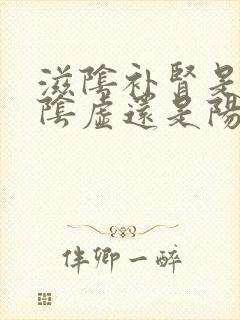 滋陰补腎是
陰虛還是陽
伴卿一醉